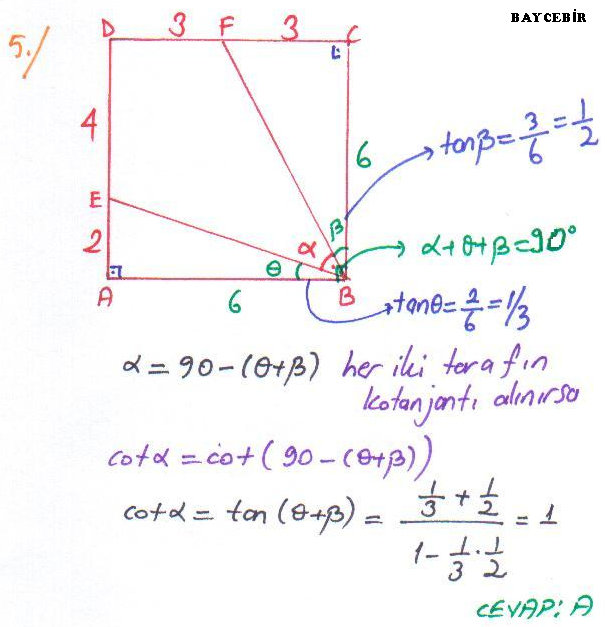 BAYCEBİR
5./
D 3 F 3 C
4
6
tanβ = 3/6 = 1/2
E
2
θ α β
α+θ+β=90°
A 6 B
tanθ = 2/6 = 1/3
α = 90 - (θ+β) her iki tarafın
kotanjantı alınırsa
cotα = cot(90 - (θ+β))
cotα = tan(θ+β) = (1/3 + 1/2)/(1 - 1/3 · 1/2) = 1
CEVAP: A